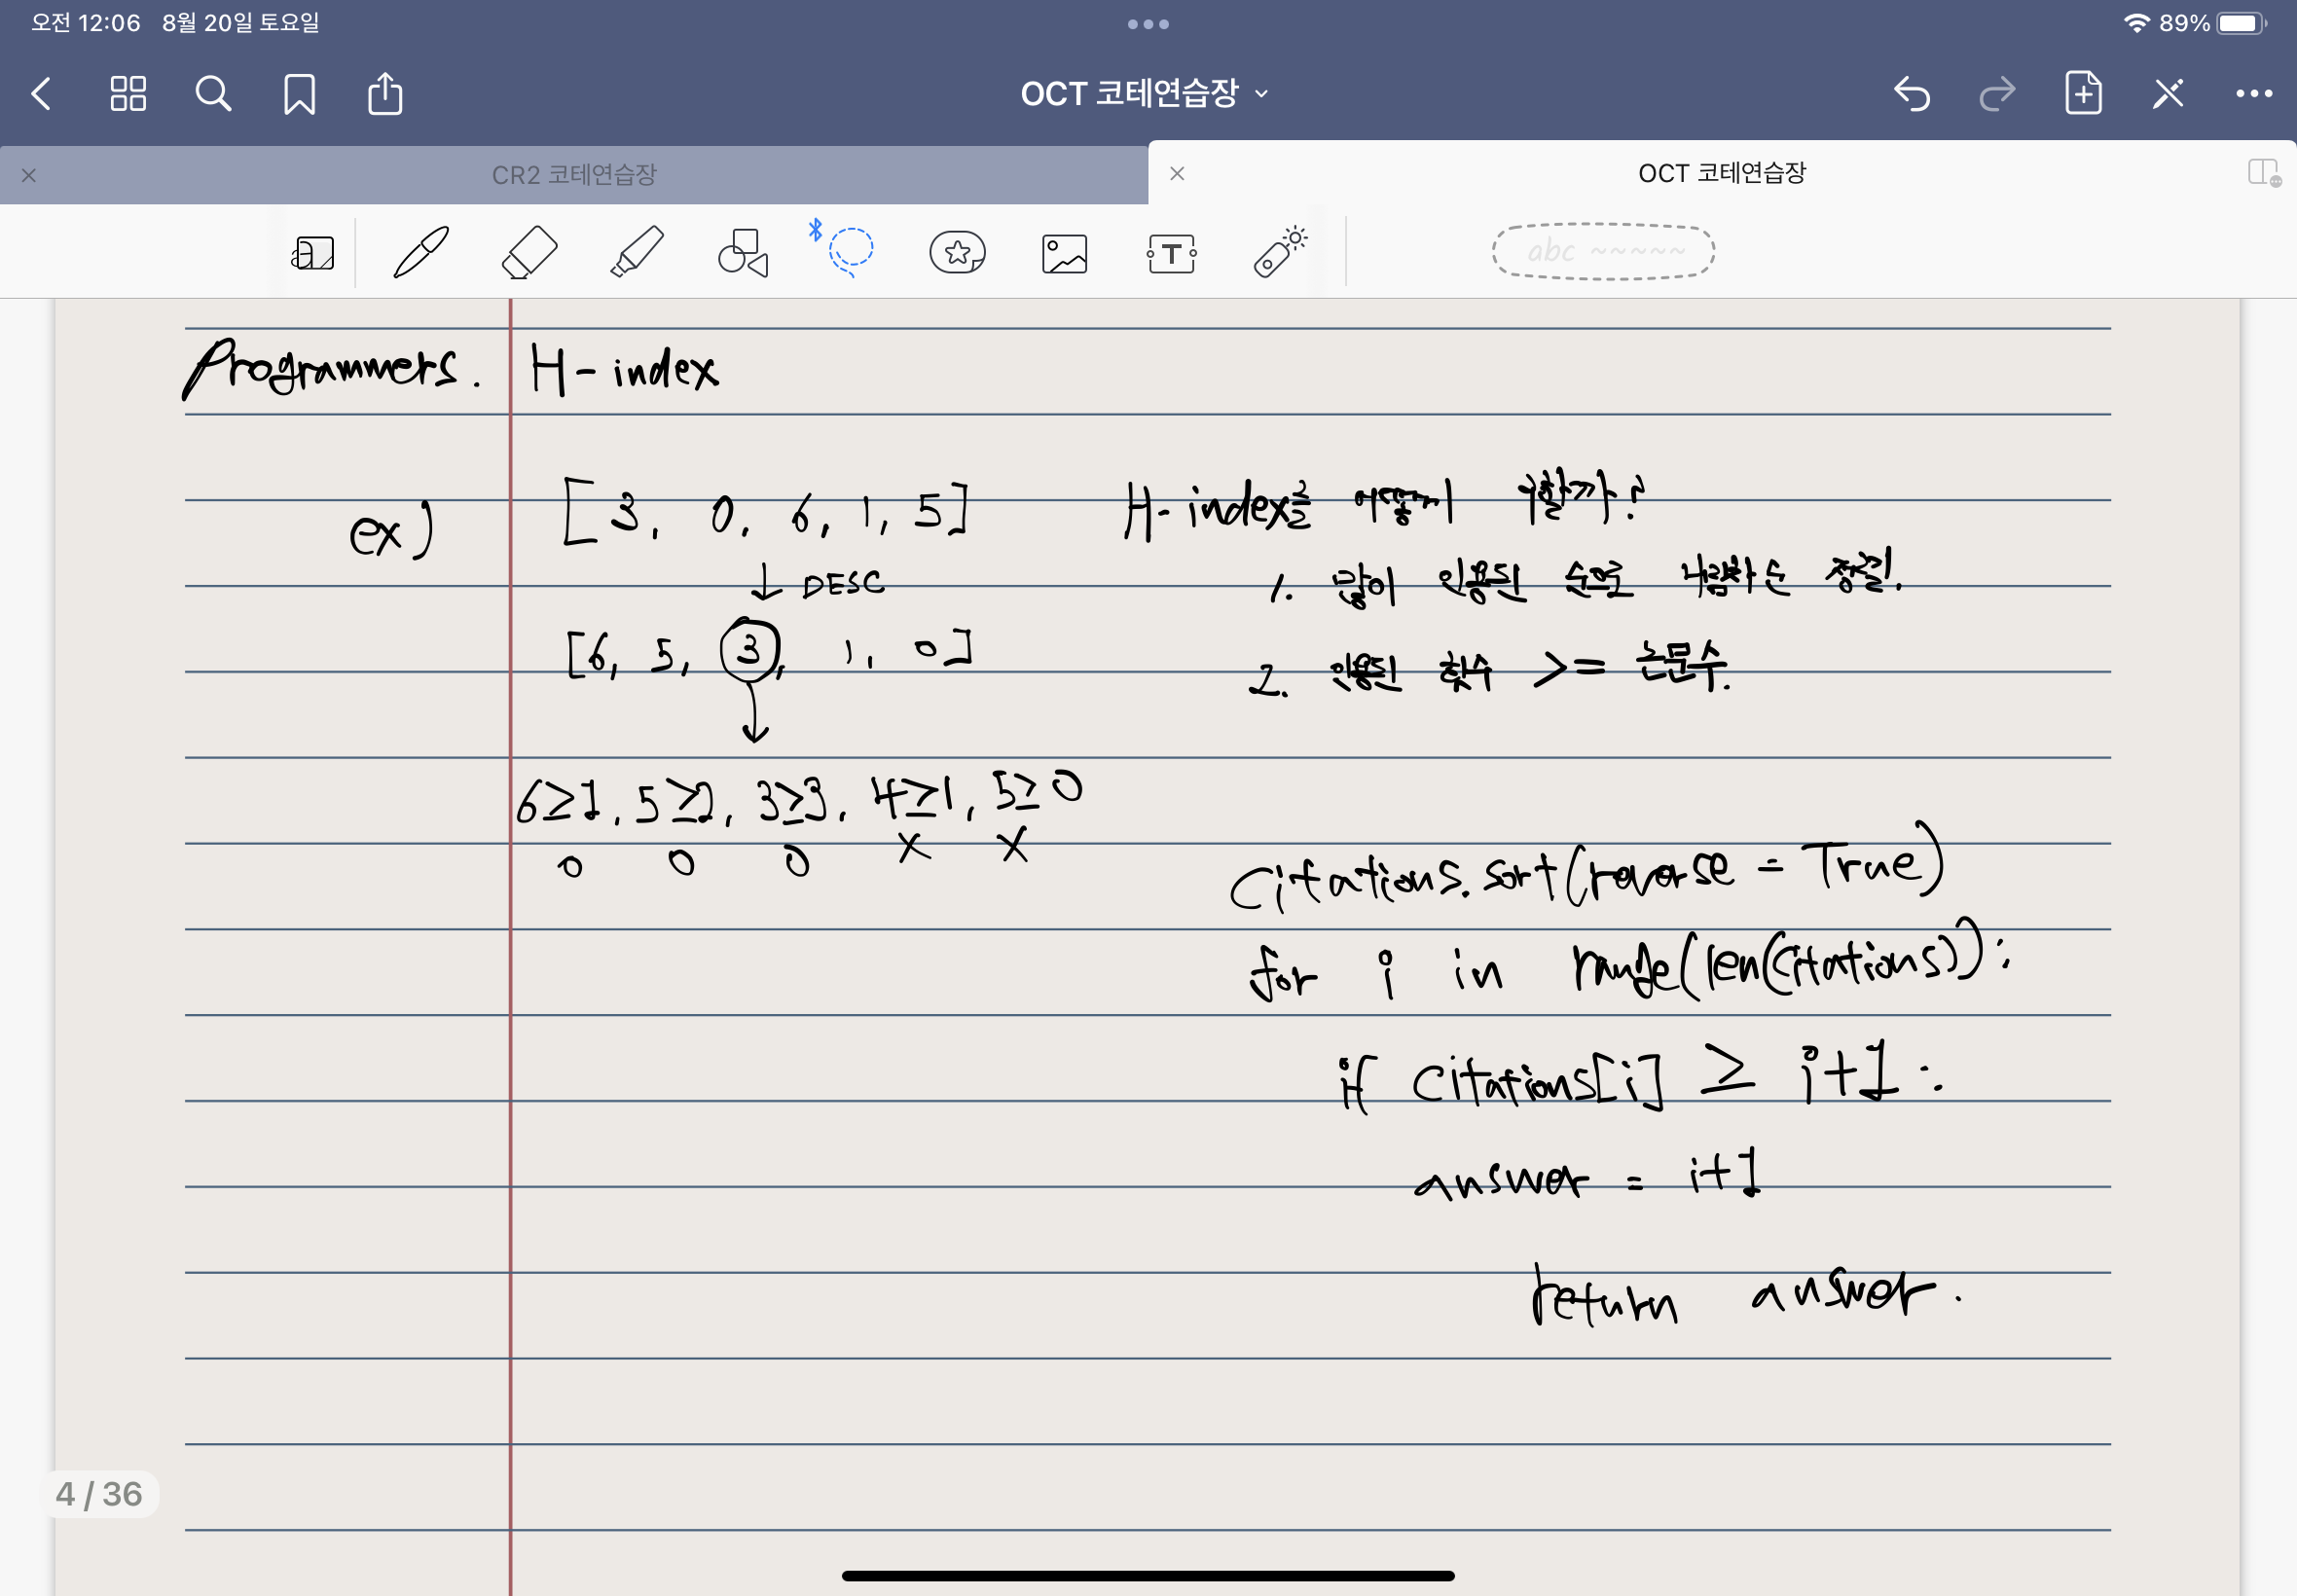 오전 12:06 8월 20일 토요일
89%
OCT 코테연습장
CR2 코테연습장
OCT 코테연습장
abc ~~~~~
Programmers. H-index
ex) [3, 0, 6, 1, 5]
↓ DESC
[6, 5, 3, 1, 0]
6≥1, 5≥2, 3≥3, 4≥1, 5≥0
O O O X X
H-index를 어떻게 구할까?
1. 많이 인용된 순으로 내림차순 정렬.
2. 인용된 횟수 >= 논문수.
citations.sort(reverse = True)
for i in range(len(citations)):
if citations[i] ≥ i+1 :
answer = i+1
return answer.
4 / 36